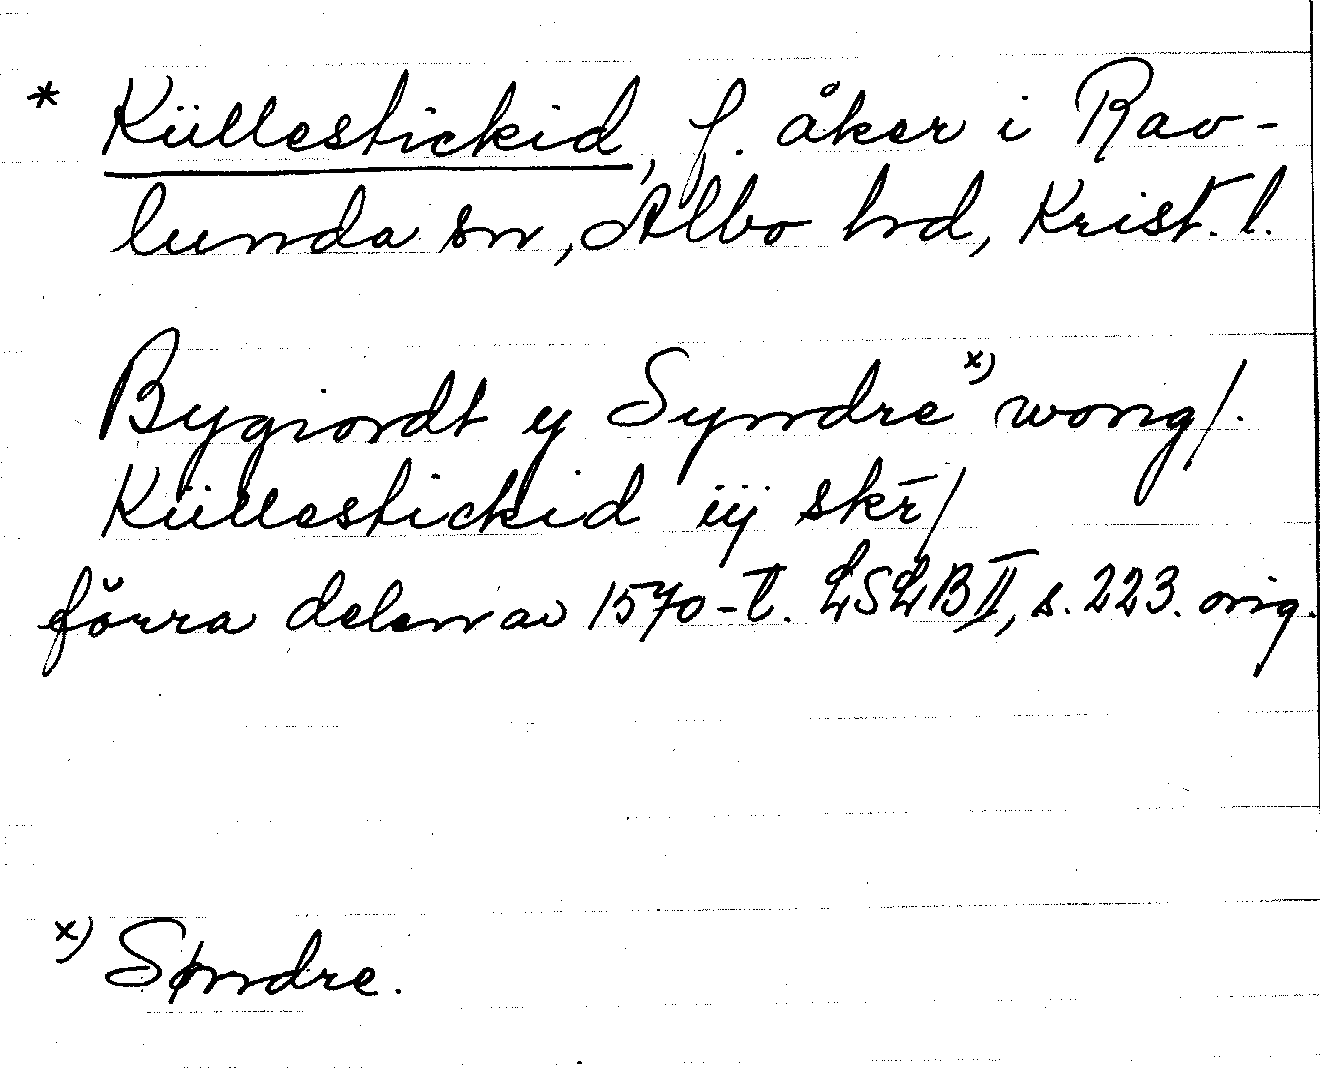 * Küllestickid, f. åker i Rav-
lunda sn, Albo hd, Krist. l.
Bygiordt y Syndre x) wong/.
Küllestickid iij skr̄/
förra delen av 1570-t. LSLB II, s. 223. orig.
x) Søndre.